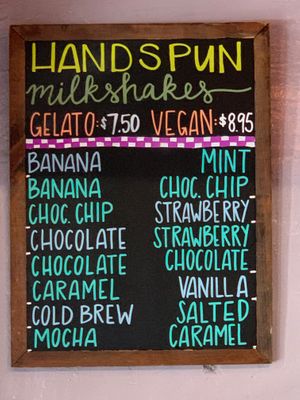 HANDSPUN
milkshakes
GELATO:$7.50 VEGAN:$8.95
BANANA
BANANA
CHOC. CHIP
CHOCOLATE
CHOCOLATE
CARAMEL
COLD BREW
MOCHA
MINT
CHOC. CHIP
STRAWBERRY
STRAWBERRY
CHOCOLATE
VANILLA
SALTED
CARAMEL